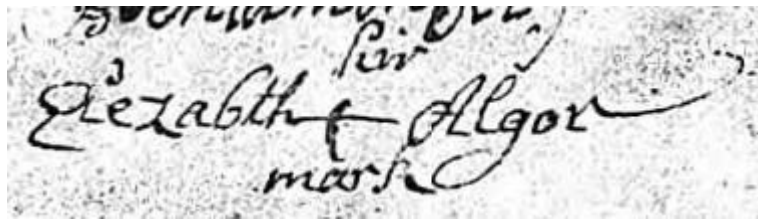 hir
Elezabth + Algor
mark